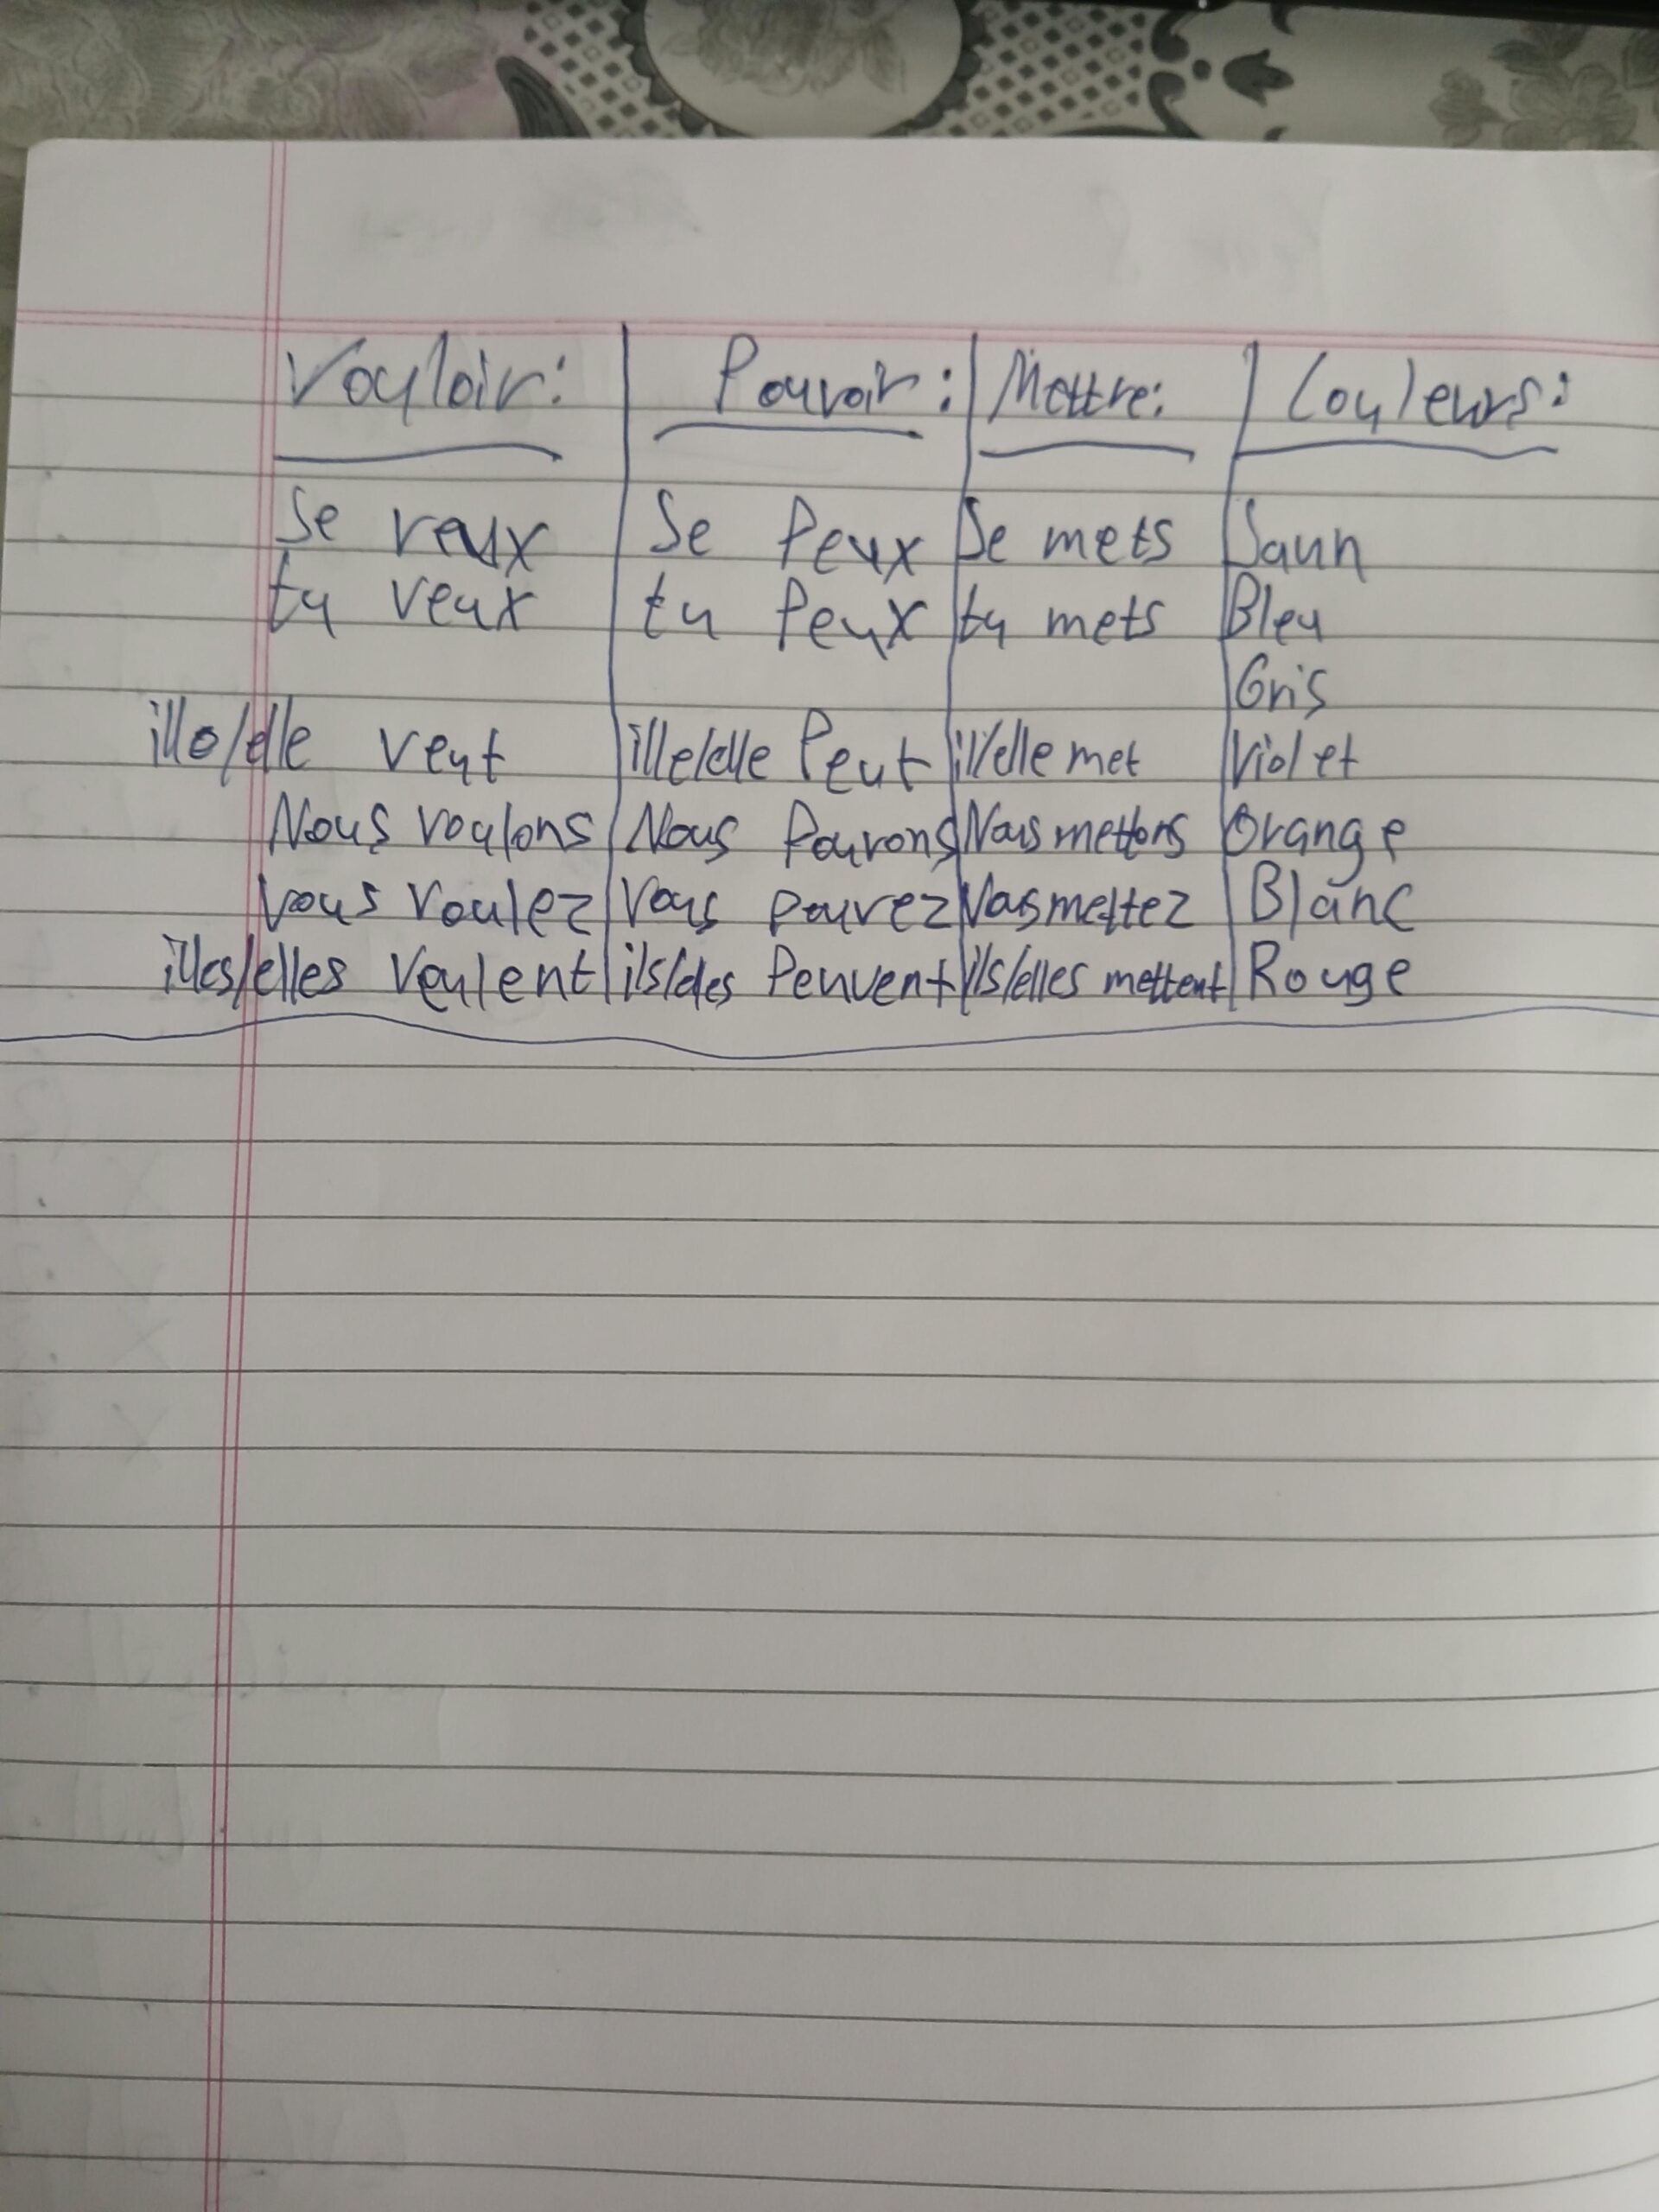 Vouloir: Pouvoir: Mettre: Couleurs:
Je veux Je Peux Je mets Jaun
tu veux tu Peux tu mets Bleu
Gris
ille/elle veut ille/elle Peut il/elle met Violet
Nous voulons Nous Pouvons Nous mettons Orange
Vous Voulez Vous pouvez Vous mettez Blanc
illes/elles Veulent ils/elles Peuvent ils/elles mettent Rouge